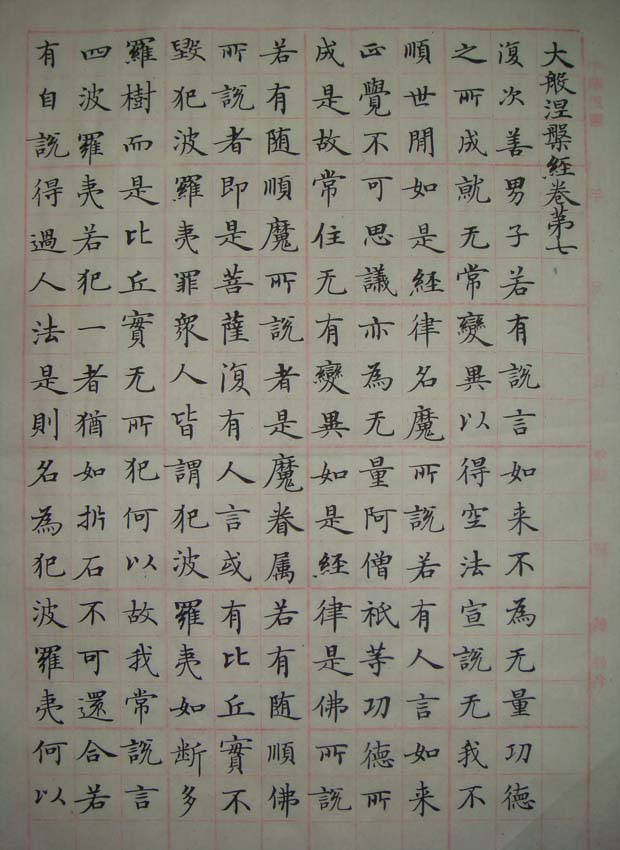 大般涅槃经卷第七
復次善男子若有説言如来不為无量功德
之所成就无常變異以得空法宣説无我不
順世間如是経律名魔所説若有人言如来
正覺不可思議亦為无量阿僧祇等功德所
成是故常住无有變異如是経律是佛所説
若有随順魔所説者是魔眷属若有随順佛
所説者即是菩薩復有人言或有比丘實不
毀犯波羅夷罪眾人皆謂犯波羅夷如断多
羅樹而是比丘實无所犯何以故我常説言
四波羅夷若犯一者猶如㭊石不可還合若
有自説得過人法是則名為犯波羅夷何以